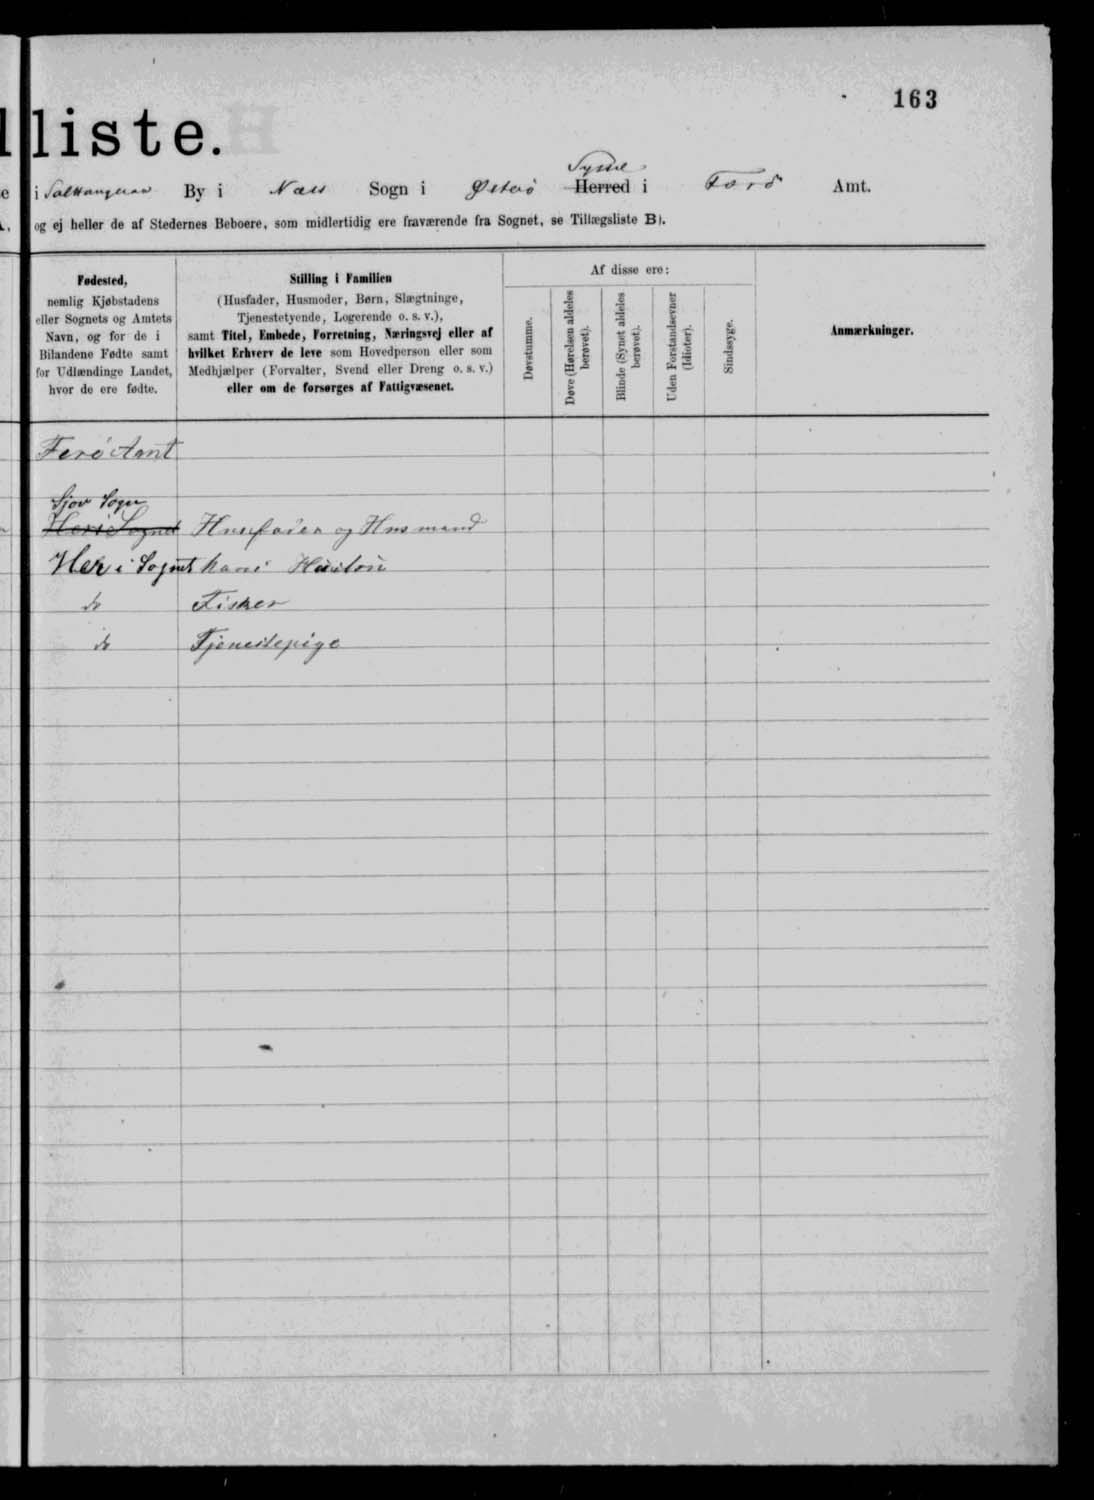 163
lliste.
e i Saltangeraa By i Næs Sogn i Østerø Herred Syssel i Færø Amt.
A, og ej heller de af Stedernes Beboere, som midlertidig ere fraværende fra Sognet, se Tillægsliste B).
Fødested,
nemlig Kjøbstadens
eller Sognets og Amtets
Navn, og for de i
Bilandene Fødte samt
for Udlændinge Landet,
hvor de ere fødte.
Stilling i Familien
(Husfader, Husmoder, Børn, Slægtninge,
Tjenestetyende, Logerende o. s. v.),
samt Titel, Embede, Forretning, Næringsvej eller af
hvilket Erhverv de leve som Hovedperson eller som
Medhjælper (Forvalter, Svend eller Dreng o. s. v.)
eller om de forsørges af Fattigvæsenet.
Af disse ere:
Døvstumme.
Døve (Hørelsen aldeles
berøvet).
Blinde (Synet aldeles
berøvet).
Uden Forstandsevner
(Idioter).
Sindssyge.
Anmærkninger.
Ferø Amt
Sjov Sogn
Her i Sognet Husfader og Husmand
Her i Sognet hans
do Fisker
do Tjenestepige